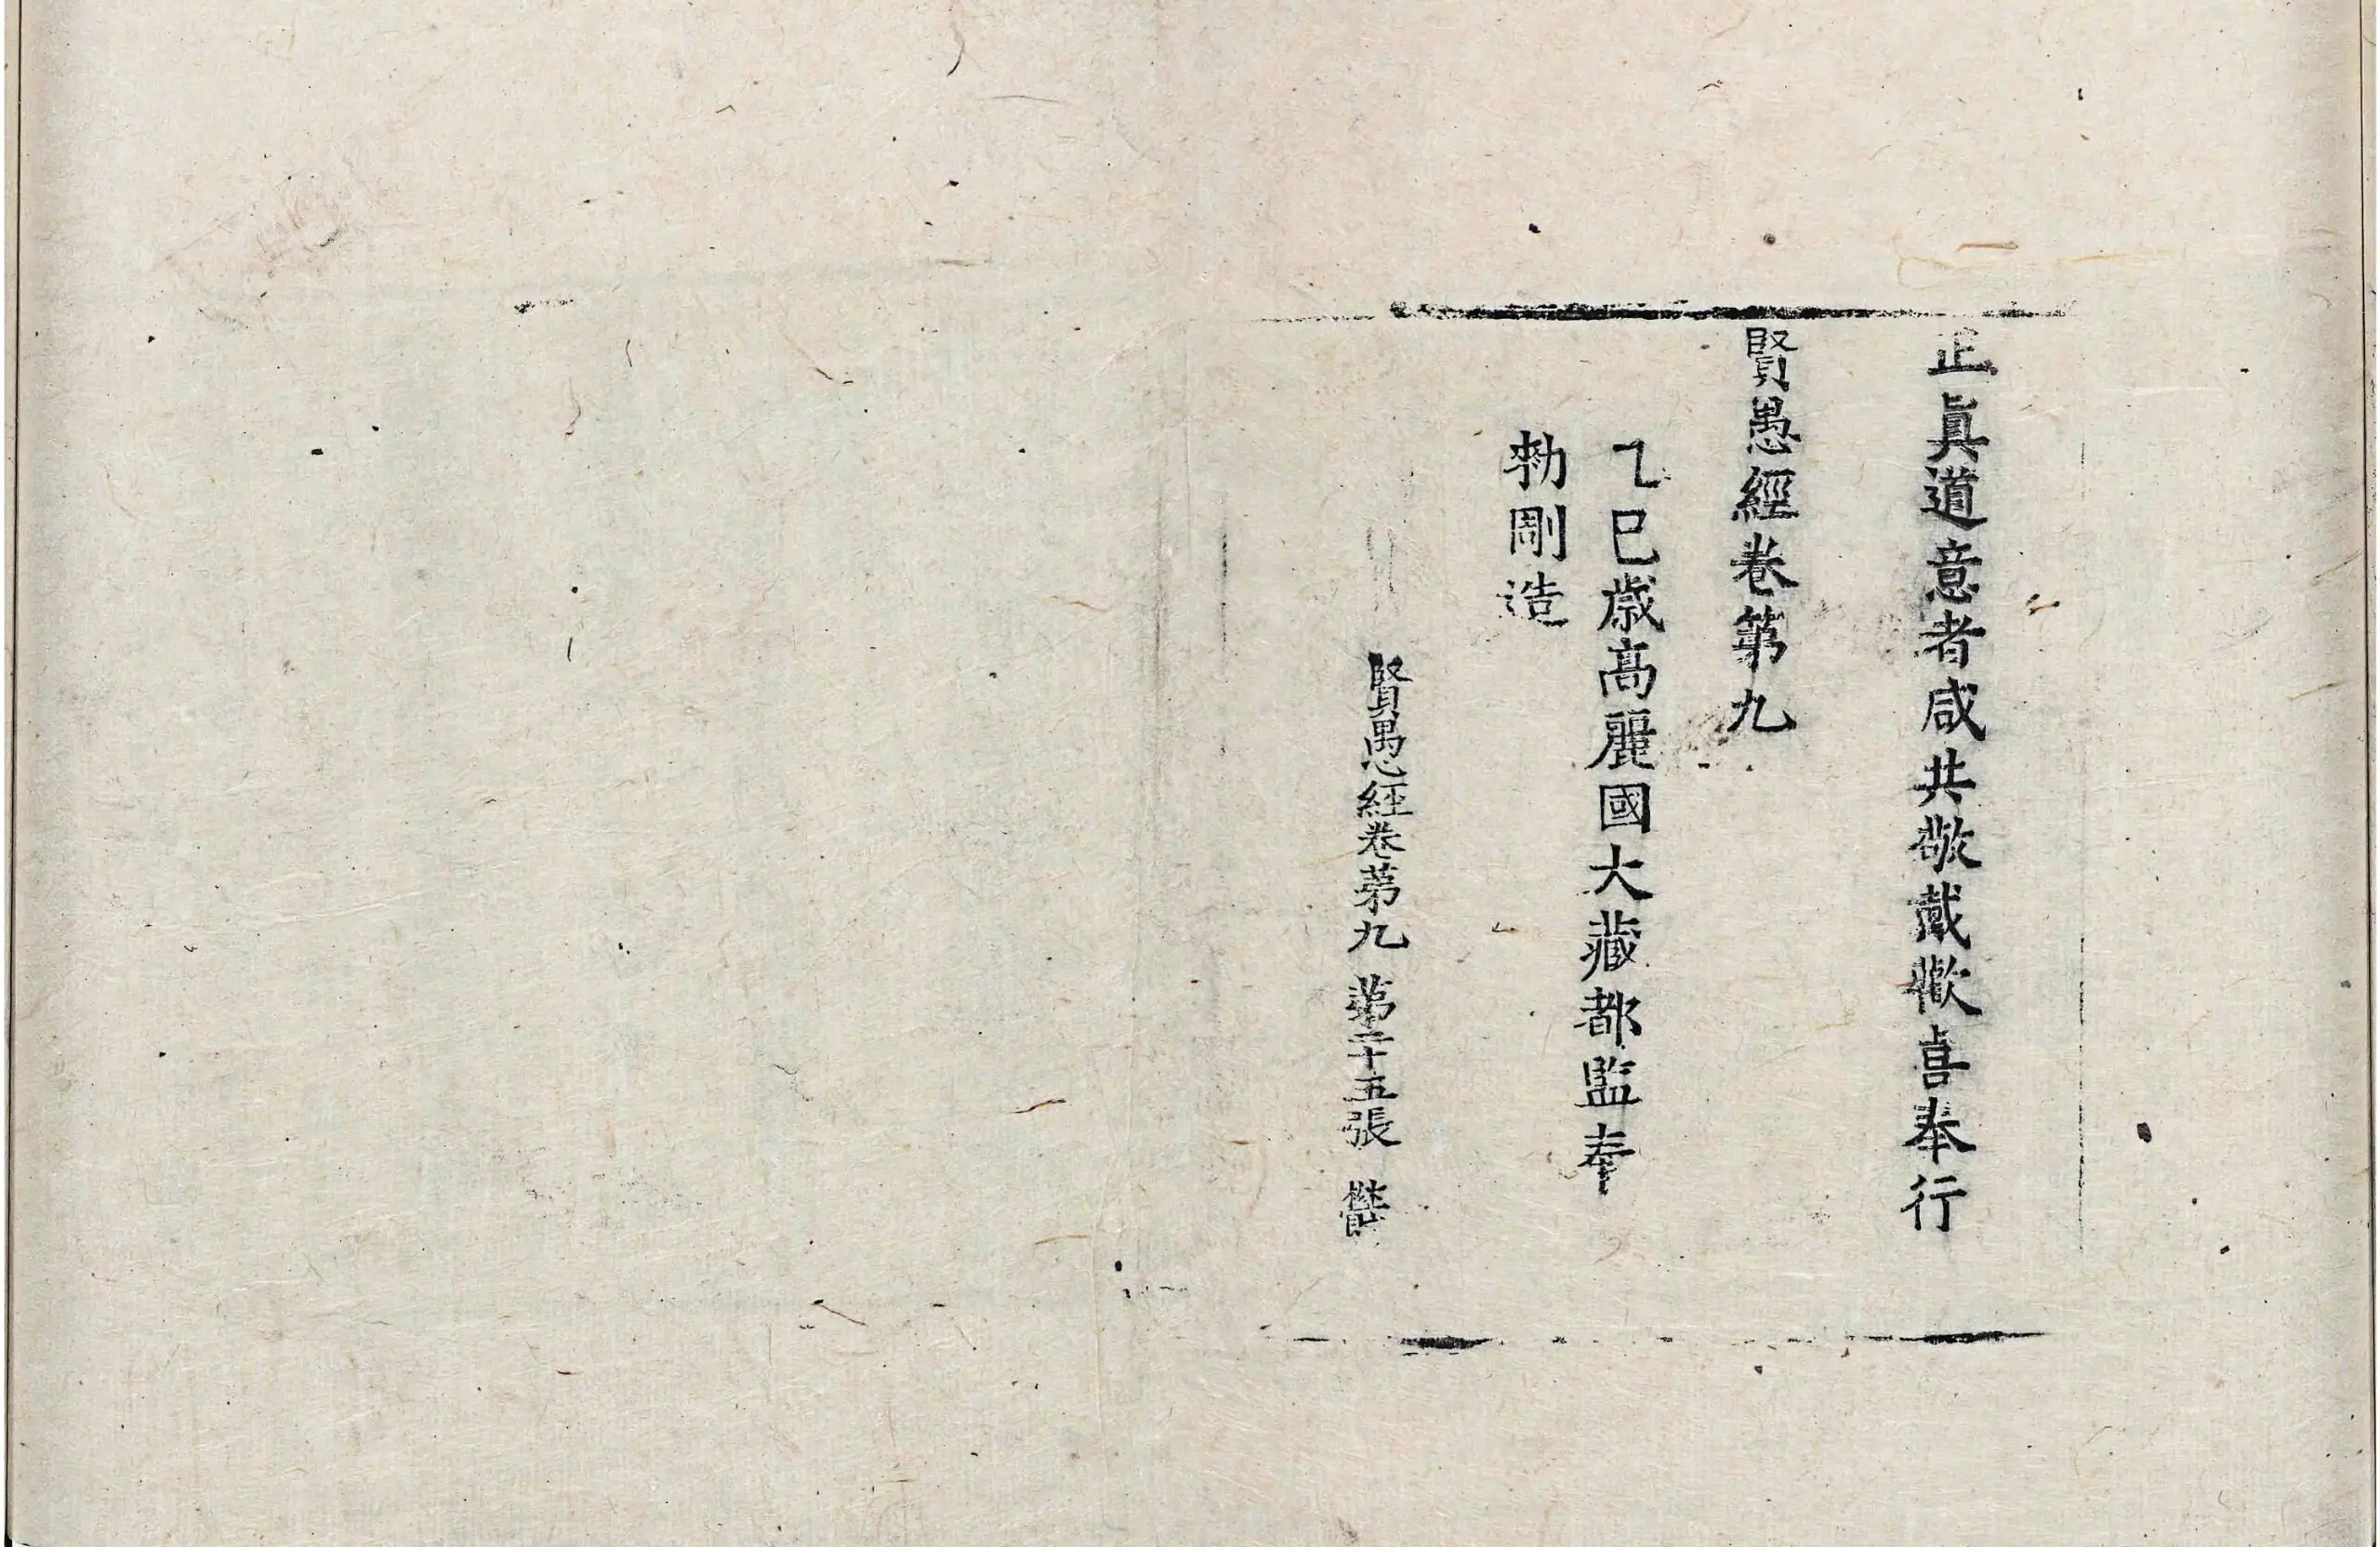 正眞道意者咸共敬戴歡喜奉行
賢愚經卷第九
乙巳歲高麗國大藏都監奉
勅彫造
賢愚經卷第九 第二十五張